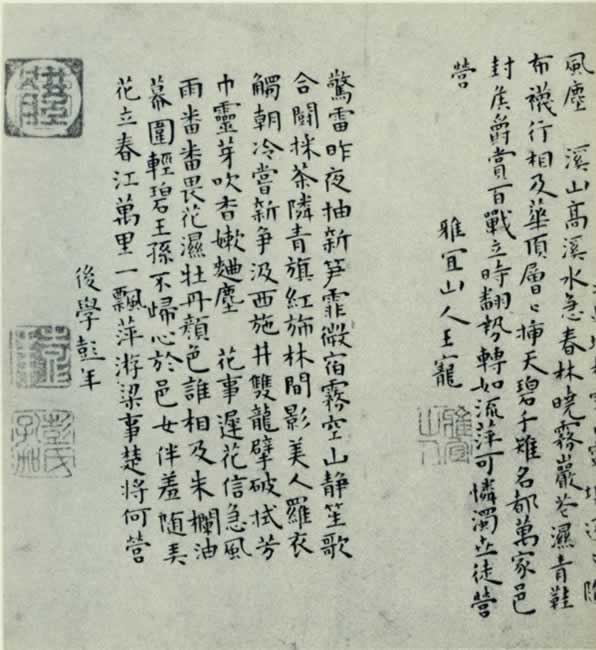 風塵 溪山高溪水急春林曉霧巖苍濕青鞋
布襪行相及華頂層々插天碧千雉名都萬家邑
封侯爵賞百戰立時翻勢轉如流萍可憐濁世徒營
營
雅宜山人王寵
雅宜山人
驚雷昨夜抽新笋霏微宿霧空山靜笙歌
合鬭採茶隣青旗紅斾林間影美人羅衣
觸朝冷嘗新爭汲西施井雙龍擘破拭芳
巾靈芽吹香嫩麯塵 花事遲花信急風
雨番番畏花濕牡丹顏色誰相及朱欄油
幕圍輕碧王孫不歸心於邑女伴羞隨美
花立春江萬里一飄萍游梁事楚將何營
後學彭年